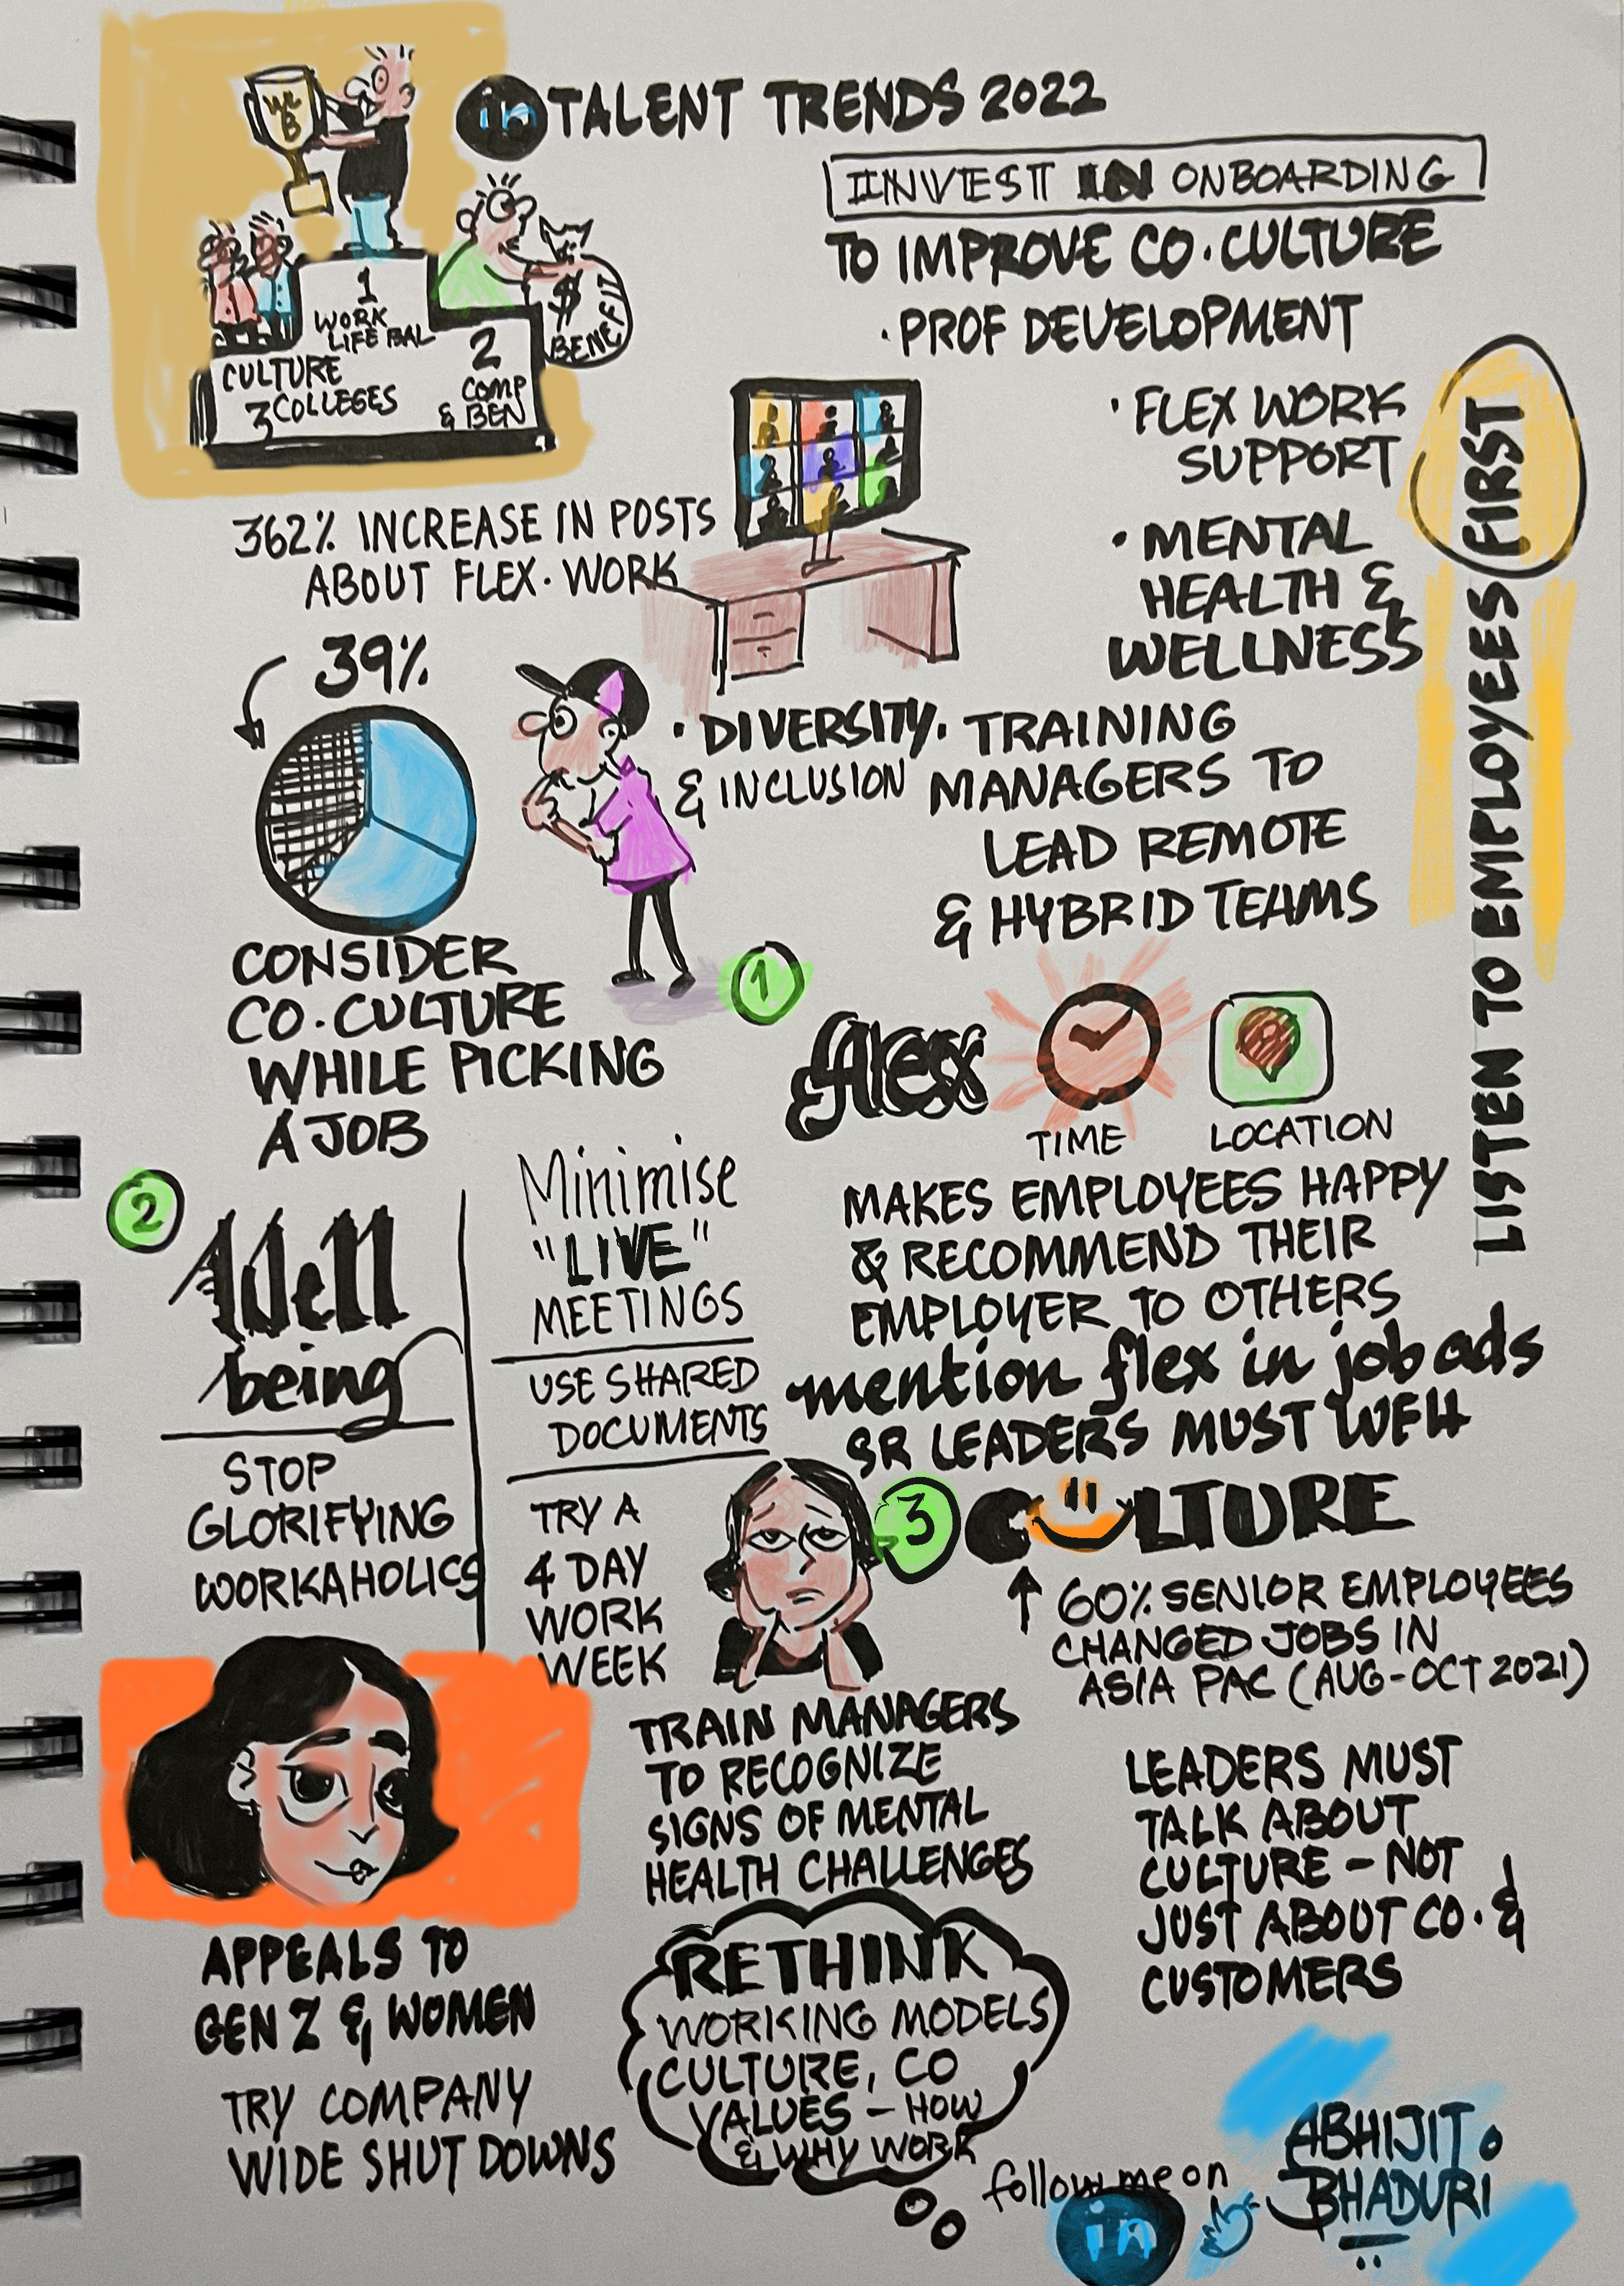 in TALENT TRENDS 2022
WL
B
1
WORK
LIFE BAL
2
COMP
& BEN
CULTURE
3 COLLEGES
$
BENEFIT
INVEST IN ONBOARDING
TO IMPROVE CO. CULTURE
· PROF DEVELOPMENT
· FLEX WORK
SUPPORT
· MENTAL
HEALTH &
WELLNESS
· DIVERSITY
& INCLUSION
· TRAINING
MANAGERS TO
LEAD REMOTE
& HYBRID TEAMS
LISTEN TO EMPLOYEES FIRST
362% INCREASE IN POSTS
ABOUT FLEX. WORK
39%
CONSIDER
CO. CULTURE
WHILE PICKING
A JOB
1
flex
TIME
LOCATION
MAKES EMPLOYEES HAPPY
& RECOMMEND THEIR
EMPLOYER TO OTHERS
mention flex in job ads
SR LEADERS MUST WFH
2
Well
being
STOP
GLORIFYING
WORKAHOLICS
Minimise
"LIVE"
MEETINGS
USE SHARED
DOCUMENTS
TRY A
4 DAY
WORK
WEEK
3 CULTURE
↑ 60% SENIOR EMPLOYEES
CHANGED JOBS IN
ASIA PAC (AUG-OCT 2021)
TRAIN MANAGERS
TO RECOGNIZE
SIGNS OF MENTAL
HEALTH CHALLENGES
LEADERS MUST
TALK ABOUT
CULTURE - NOT
JUST ABOUT CO. &
CUSTOMERS
APPEALS TO
GEN Z & WOMEN
TRY COMPANY
WIDE SHUT DOWNS
RETHINK
WORKING MODELS
CULTURE, CO
VALUES - HOW
& WHY WORK
follow me on
in
ABHIJIT
BHADURI